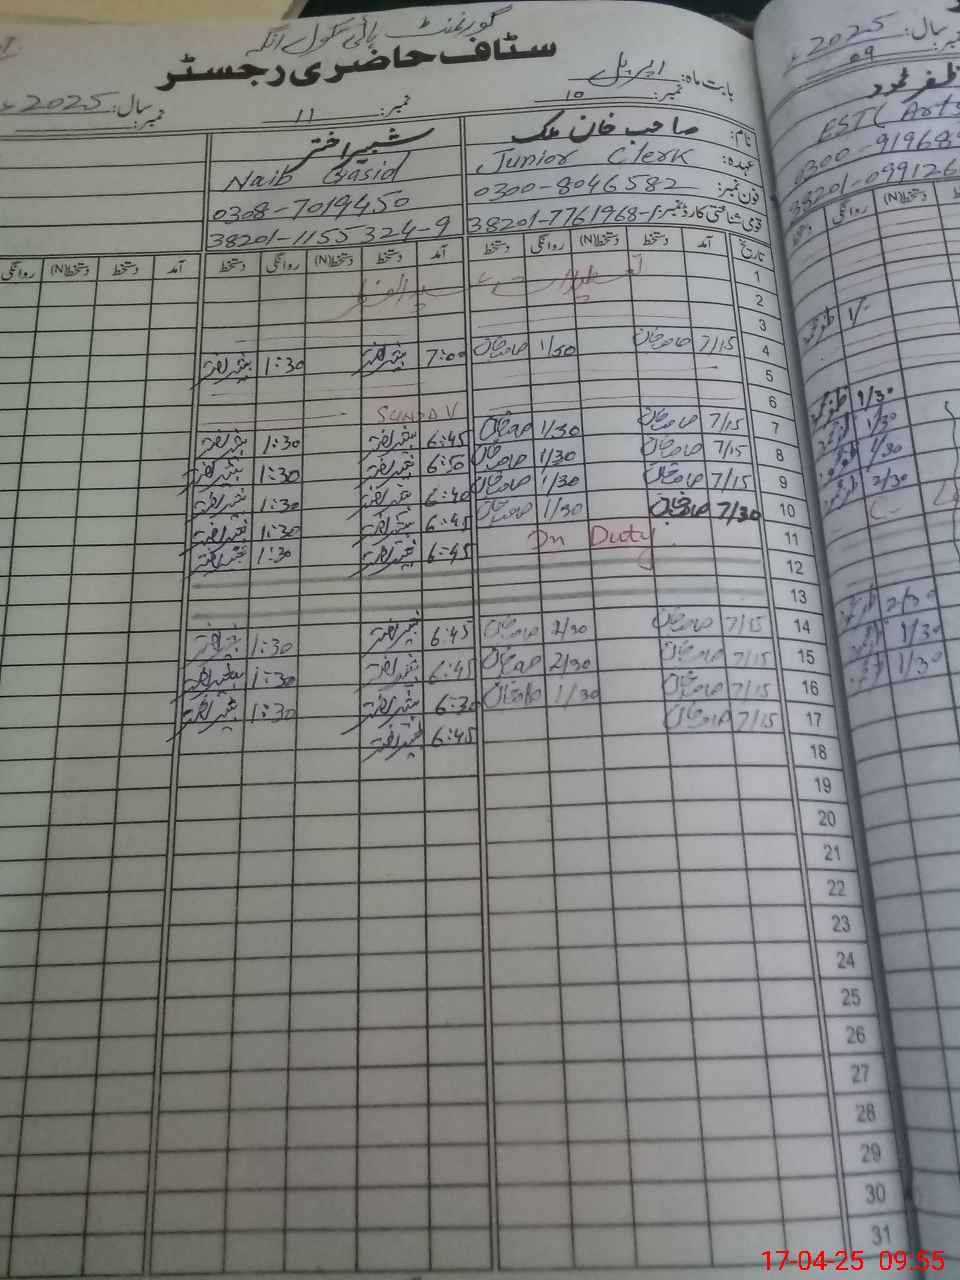 گورنمنٹ ہائی سکول انگہ
سٹاف حاضری رجسٹر
بابت ماہ: اپریل سال: 2025ء
نمبر: 10 نمبر: 11 نمبر:
نام: صاحب خان ملک شبیر اختر
عہدہ: Junior Clerk Naib Qasid
فون نمبر: 0300-8046582 0308-7019450
قومی شناختی کارڈ نمبر: 38201-7761968-1 38201-1155324-9
تاریخ آمد دستخط دستخط(N) روانگی دستخط آمد دستخط دستخط(N) روانگی دستخط آمد دستخط دستخط(N) روانگی
1
2
3
4 7/15 صاحب خان 1/30 صاحب خان 7:00 شبیر اختر 1:30 شبیر اختر
5
6 SUNDAY
7 7/15 صاحب خان 1/30 صاحب خان 6:45 شبیر اختر 1:30 شبیر اختر
8 7/15 صاحب خان 1/30 صاحب خان 6:50 شبیر اختر 1:30 شبیر اختر
9 7/15 صاحب خان 1/30 صاحب خان 6:40 شبیر اختر 1:30 شبیر اختر
10 7/30 صاحب خان 1/30 صاحب خان 6:45 شبیر اختر 1:30 شبیر اختر
11 On Duty 6:45 شبیر اختر 1:30 شبیر اختر
12
13
14 7/15 صاحب خان 2/30 صاحب خان 6:45 شبیر اختر 1:30 شبیر اختر
15 7/15 صاحب خان 2/30 صاحب خان 6:45 شبیر اختر 1:30 شبیر اختر
16 7/15 صاحب خان 1/30 صاحب خان 6:30 شبیر اختر 1:30 شبیر اختر
17 7/15 صاحب خان 6:45 شبیر اختر
18
19
20
21
22
23
24
25
26
27
28
29
30
31
سال: 2025ء
نمبر: 09
ظفر محمود
EST (Arts
0300-91968
38201-099126
روانگی دستخط(N)
دستخط
1/30
1/30
1/30
2/30
2/30
1/30
1/30
17-04-25 09:55